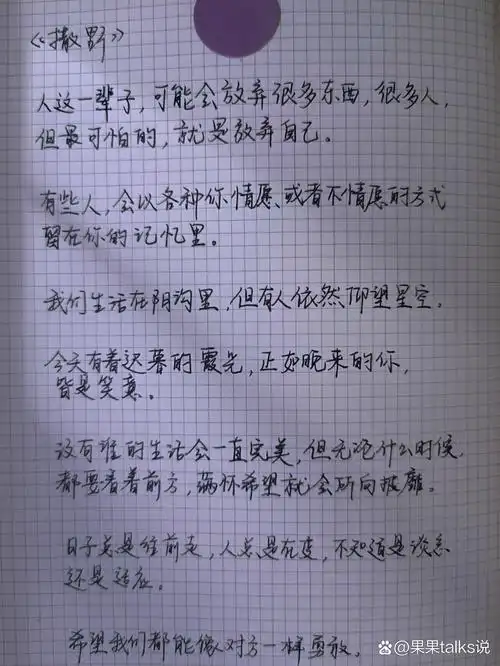 《撒野》
人这一辈子，可能会放弃很多东西，很多人，
但最可怕的，就是放弃自己。
有些人，会以各种你情愿、或者不情愿的方式
留在你的记忆里。
我们生活在阴沟里，但有人依然仰望星空。
今天有着迟暮的霞光，正如晚来的你，
皆是笑意。
没有谁的生活会一直完美，但无论什么时候，
都要看着前方，满怀希望就会所向披靡。
日子总是往前走，人总是在变，不知道是淡忘
还是适应。
希望我们都能像对方一样勇敢。
@果果talks说